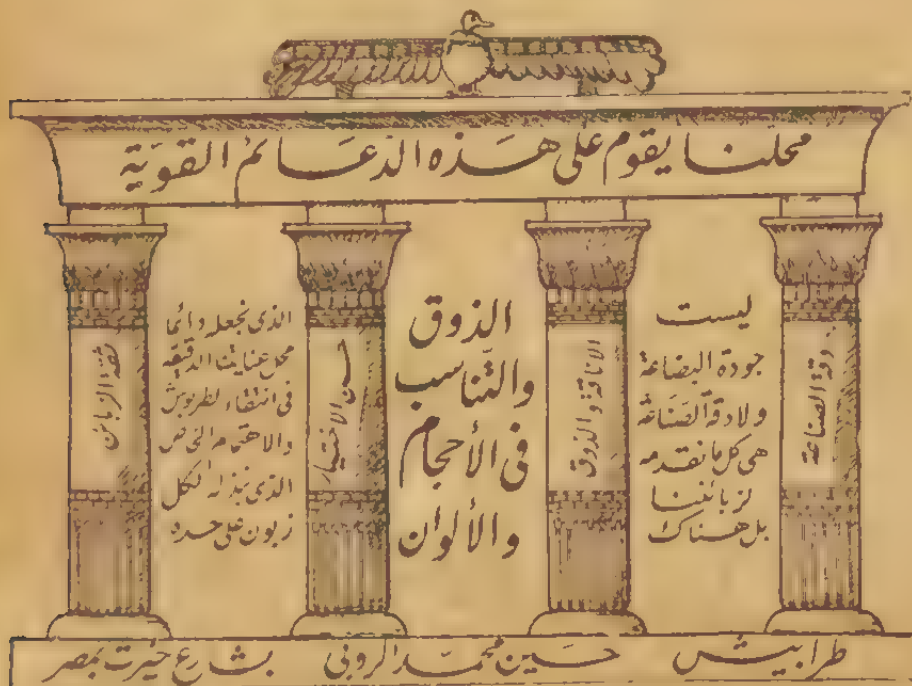 محلنا يقوم على هذه الدعائم القوية
دقة الصناعة
ليست
جودة البضاعة
ولا دقة الصناعة
هي كل ما نقدمه
لزبائننا
بل هناك
الاناقة والذوق
الذوق
والتناسب
فى الأحجام
والألوان
حسن الاختيار
الذى نجعله دائما
محل عنايتنا الدقيقه
فى انتقاء الطربوش
والاهتمام الخاص
الذى نبذله لكل
زبون على حده
ثقة الزبائن
طرابيش حسين محمد الروبى بشارع خيرت بمصر